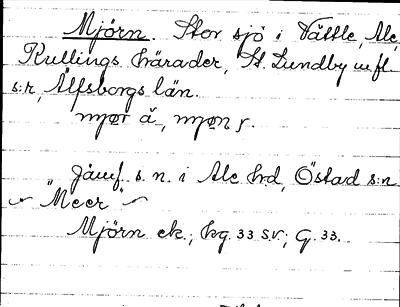 Mjörn. Stor sjö i Vättle, Ale,
Kullings härader, St. Lundby m.fl.
s:r, Älfsborgs län.
mjør å, mjøn r.
Jämf. s. n. i Ale hd, Östad s:n
"Meer"
Mjörn ek.; hg. 33 SV.; G. 33.